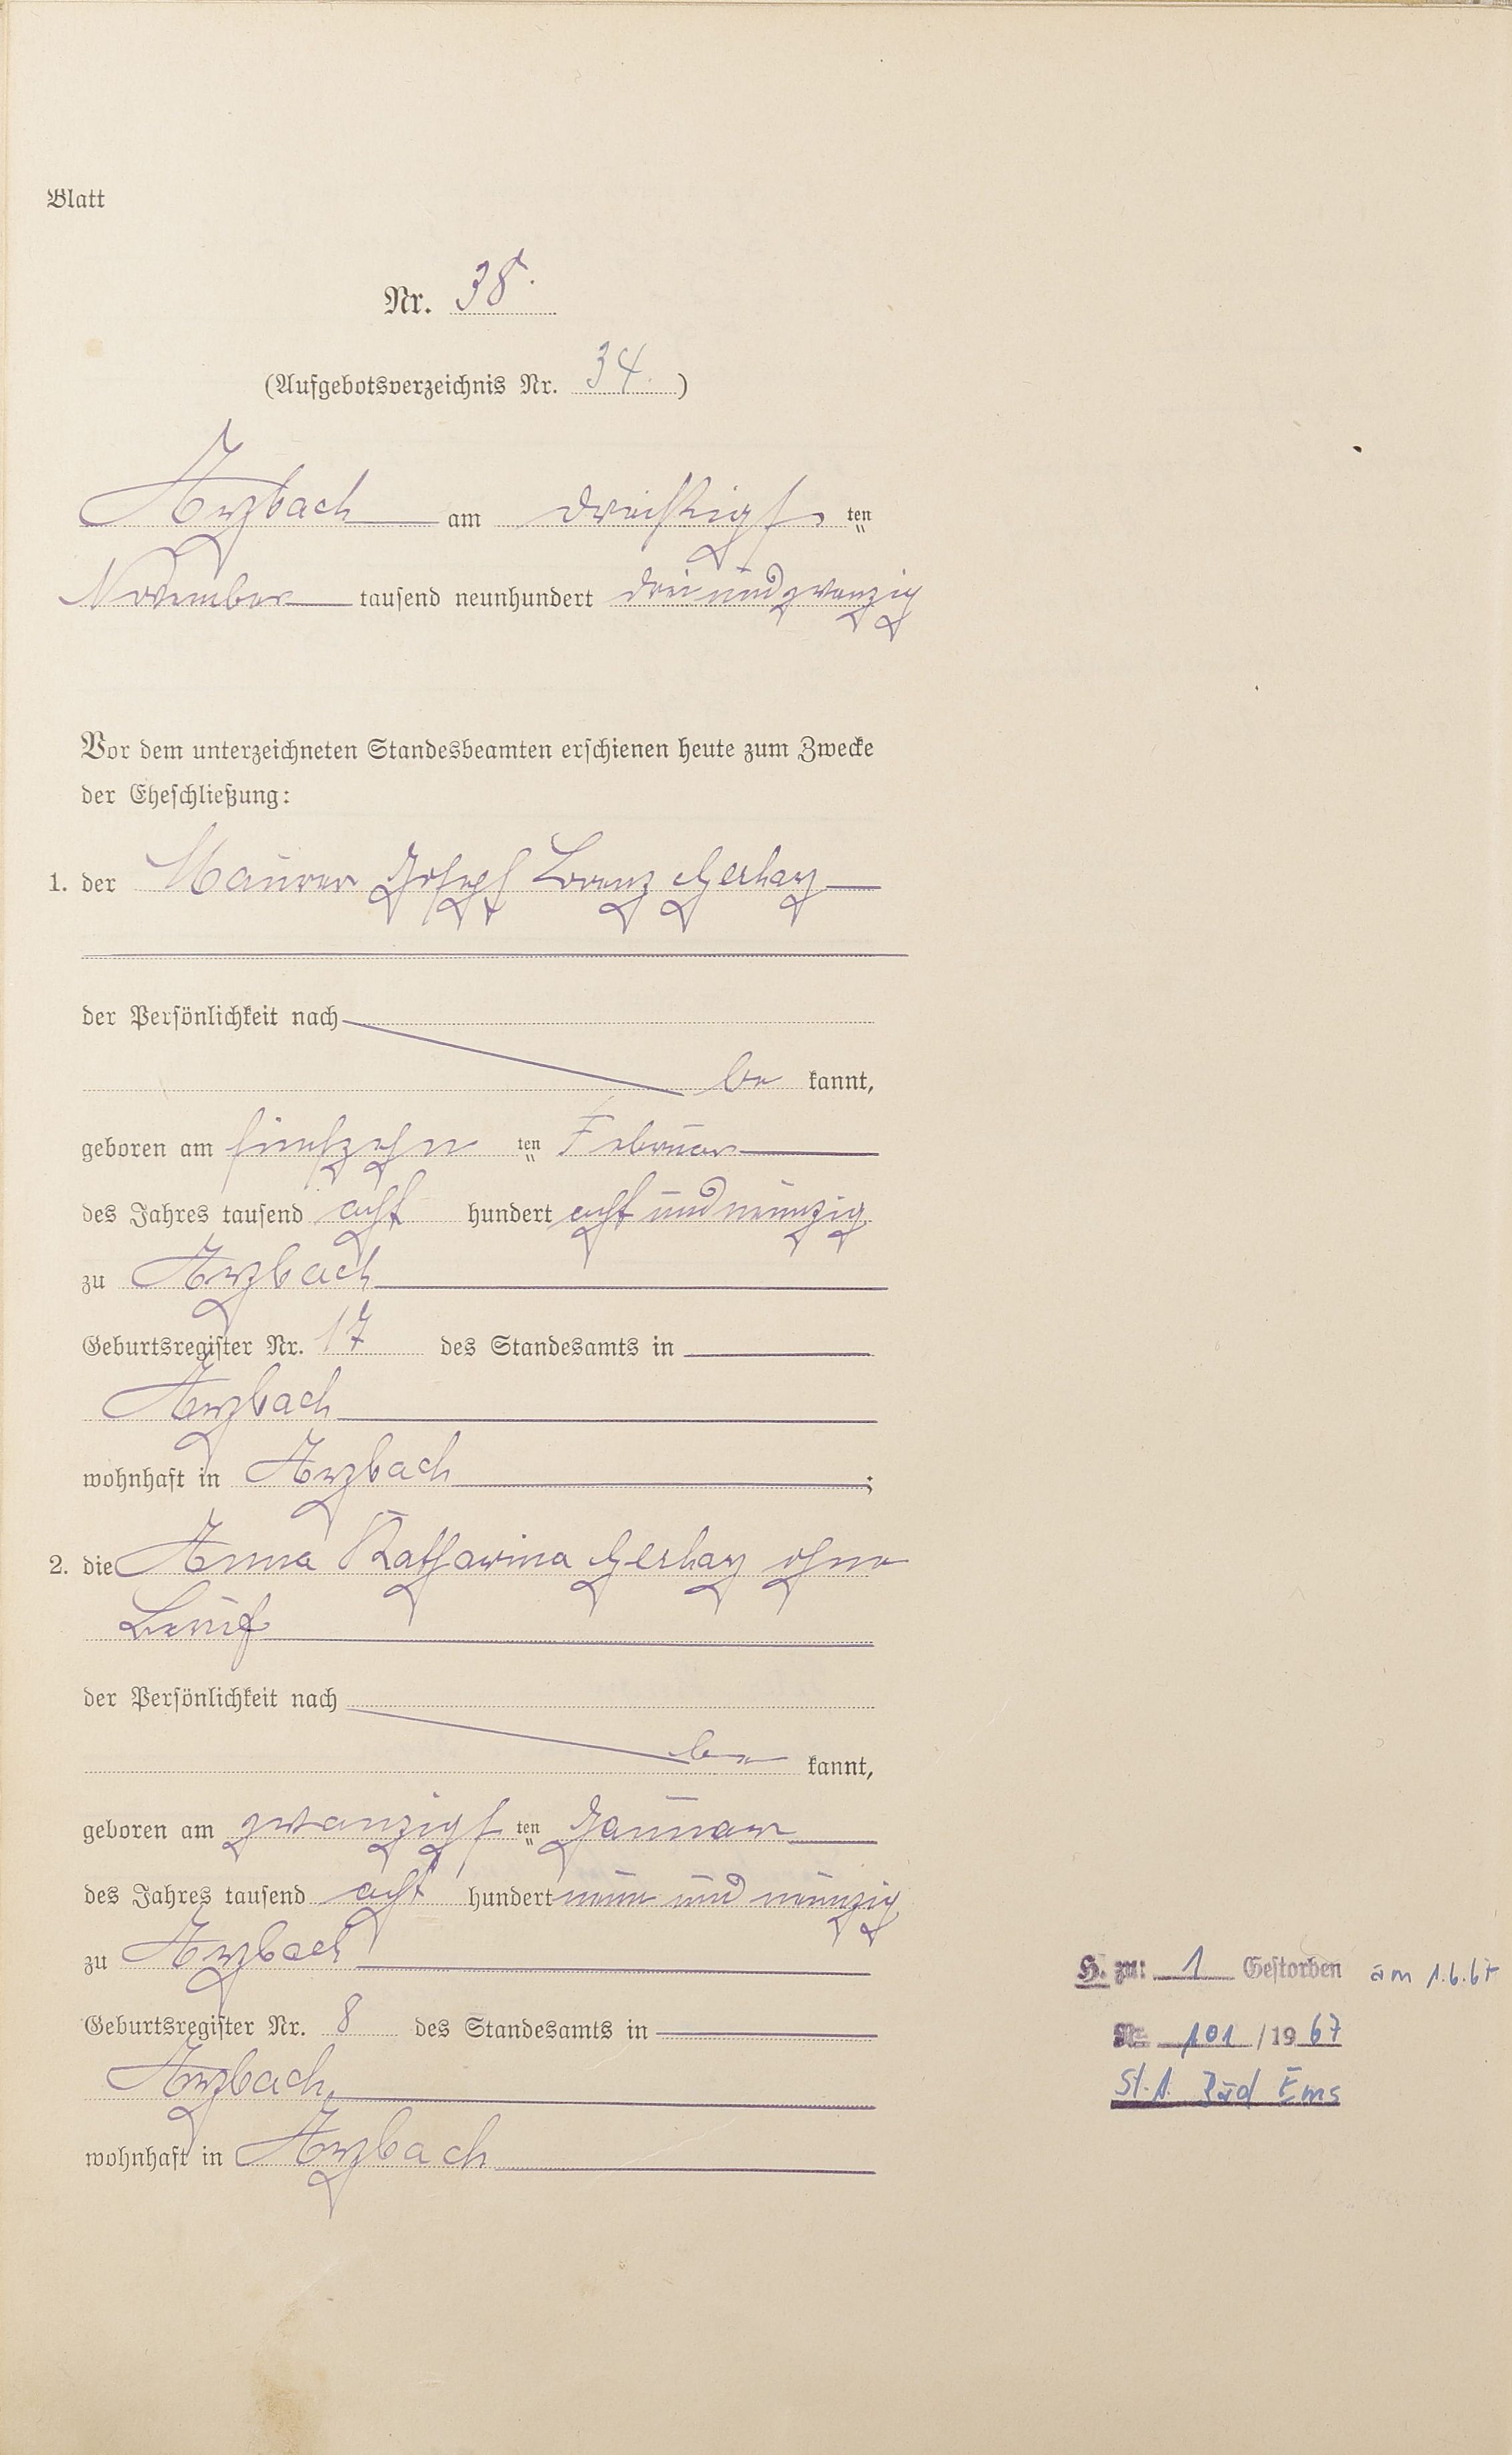 Blatt
Nr. 38.
(Aufgebotsverzeichnis Nr. 34.)
Arzbach am dreißigsten
November tausend neunhundert dreiundzwanzig
Vor dem unterzeichneten Standesbeamten erschienen heute zum Zwecke
der Eheschließung:
1. der Maurer Joseph Lorenz Gerharz
der Persönlichkeit nach
be kannt,
geboren am fünfzehn ten Februar
des Jahres tausend acht hundert acht und neunzig
zu Arzbach
Geburtsregister Nr. 17 des Standesamts in
Arzbach
wohnhaft in Arzbach;
2. die Anna Katharina Gerharz ohne
Beruf
der Persönlichkeit nach
be kannt,
geboren am zwanzigs ten Januar
des Jahres tausend acht hundert neun und neunzig
zu Arzbach
Geburtsregister Nr. 8 des Standesamts in
Arzbach
wohnhaft in Arzbach
H. zu: 1 Gestorben am 1.6.67
Nr. 101 / 19 67
St.A. Bad Ems